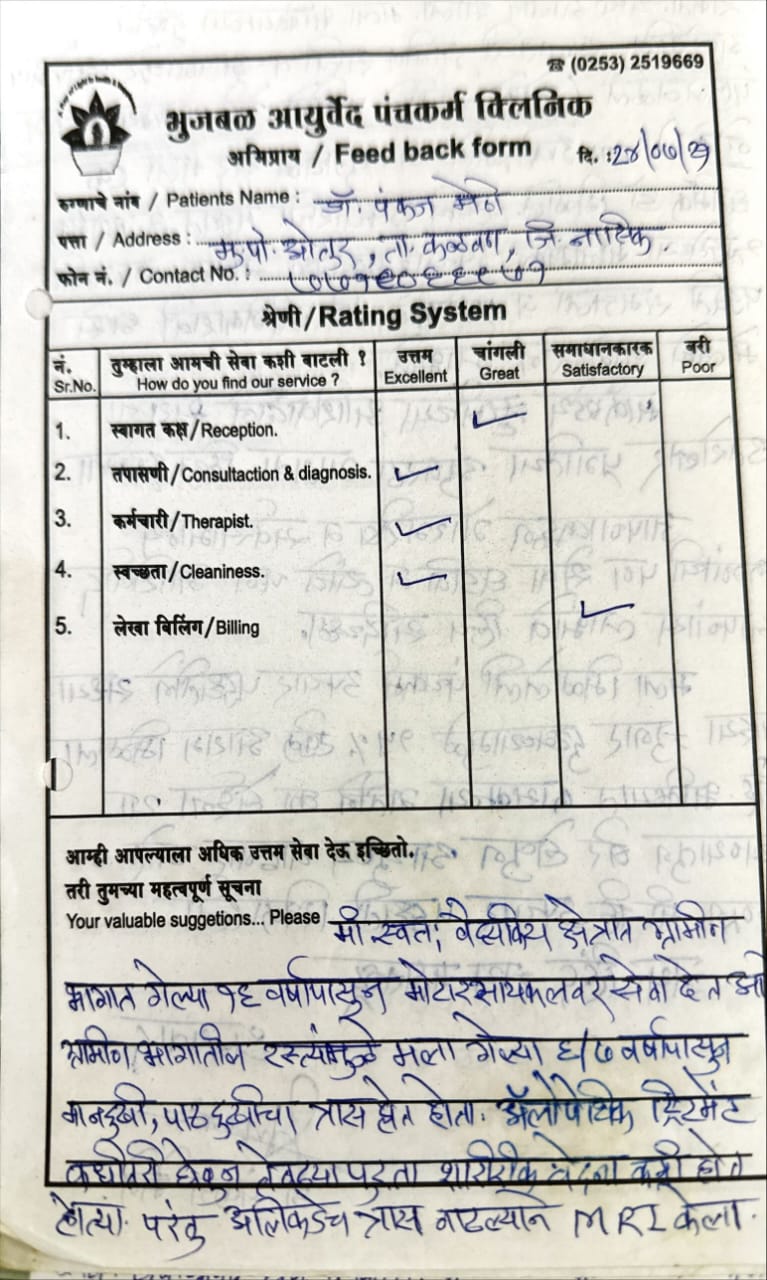 ☎ (0253) 2519669
भुजबळ आयुर्वेद पंचकर्म क्लिनिक
अभिप्राय / Feed back form दि. : २४/०७/२१
रुग्णाचे नांव / Patients Name : डॉ. पंकज मेणे
पत्ता / Address : मु.पो. ओतुर, ता. कळवण, जि. नाशिक
फोन नं. / Contact No. :
श्रेणी/Rating System
नं. तुम्हाला आमची सेवा कशी वाटली ? उत्तम चांगली समाधानकारक बरी
Sr.No. How do you find our service ? Excellent Great Satisfactory Poor
1. स्वागत कक्ष/Reception. ✓
2. तपासणी/Consultaction & diagnosis. ✓
3. कर्मचारी/Therapist. ✓
4. स्वच्छता/Cleaniness. ✓
5. लेखा बिलिंग/Billing ✓
आम्ही आपल्याला अधिक उत्तम सेवा देऊ इच्छितो.
तरी तुमच्या महत्वपूर्ण सूचना
Your valuable suggetions... Please मी स्वतः वैद्यकिय क्षेत्रात ग्रामीन
भागात गेल्या १६ वर्षापासुन मोटारसायकलवर सेवा देत
ग्रामीन भागातील रस्त्यांमुळे मला गेल्या ६/७ वर्षापासुन
मानदुखी, पाठदुखीचा त्रास होत होता. अ‍ॅलोपॅटिक ट्रिटमेंट
कधीतरी घेवुन तेवढ्या पुरता शारीरीक वेदना कमी होत
होत्या. परंतु अलिकडेच त्रास वाटल्याने MRI केला.